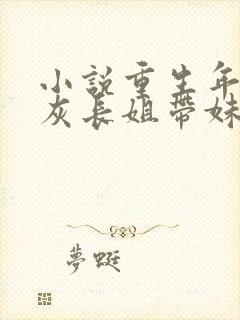 小說重生年
灰長姐帶妹
夢蜓